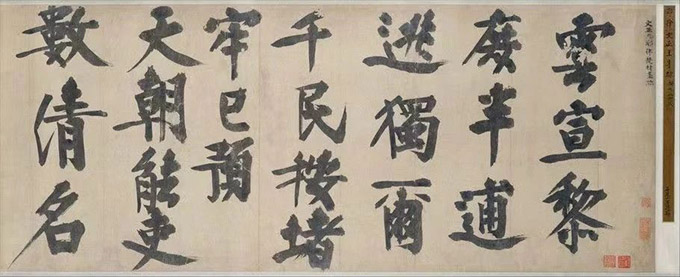 雲宣黎
庶半逋
逃獨爾
千民按堵
牢已頌
天朝能吏
數清名